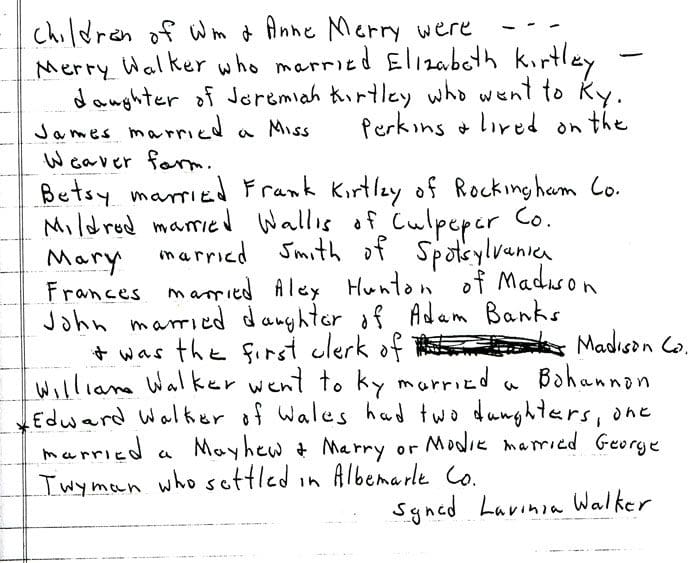 Children of Wm & Anne Merry were - - -
Merry Walker who married Elizabeth Kirtley —
daughter of Jeremiah Kirtley who went to Ky.
James married a Miss Perkins & lived on the
Weaver farm.
Betsy married Frank Kirtley of Rockingham Co.
Mildred married Wallis of Culpeper Co.
Mary married Smith of Spotsylvania
Frances married Alex Hunton of Madison
John married daughter of Adam Banks
& was the first clerk of Madison Co.
William Walker went to Ky married a Bohannon
*Edward Walker of Wales had two daughters, one
married a Mayhew & Marry or Modie married George
Twyman who settled in Albemarle Co.
Syned Lavinia Walker